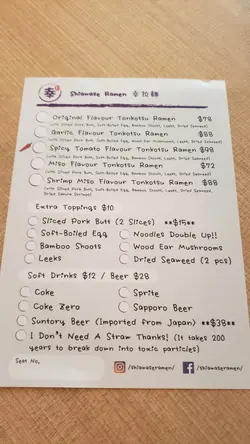 幸 Shiawase Ramen 幸拉麵
Original Flavour Tonkotsu Ramen $78
(with Sliced Pork Butt, Soft-Boiled Egg, Bamboo Shoots, Leeks, Dried Seaweed)
Garlic Flavour Tonkotsu Ramen $88
(with Sliced Pork Butt, Soft-Boiled Egg, Wood Ear Mushrooms, Leeks, Dried Seaweed)
Spicy Tomato Flavour Tonkotsu Ramen $98
(with Sliced Pork Butt, Soft-Boiled Egg, Bamboo Shoots, Leeks, Dried Seaweed)
Miso Flavour Tonkotsu Ramen $72
(with Sliced Pork Butt, Soft-Boiled Egg, Bamboo Shoots, Leeks, Dried Seaweed)
Shrimp Miso Flavour Tonkotsu Ramen $88
(with Sliced Pork Butt, Soft-Boiled Egg, Bamboo Shoots, Leeks,
Dried Sakura Shrimps, Dried Seaweed)
Extra Toppings $10
Sliced Pork Butt (2 Slices) **$15**
Soft-Boiled Egg Noodles Double Up!!
Bamboo Shoots Wood Ear Mushrooms
Leeks Dried Seaweed (2 pcs)
Soft Drinks $12 / Beer $28
Coke Sprite
Coke Zero Sapporo Beer
Suntory Beer (Imported from Japan) **$38**
I Don't Need A Straw Thanks! (It takes 200
years to break down into toxic particles)
Seat No. /shiawaseramen/ /shiawaseramen/